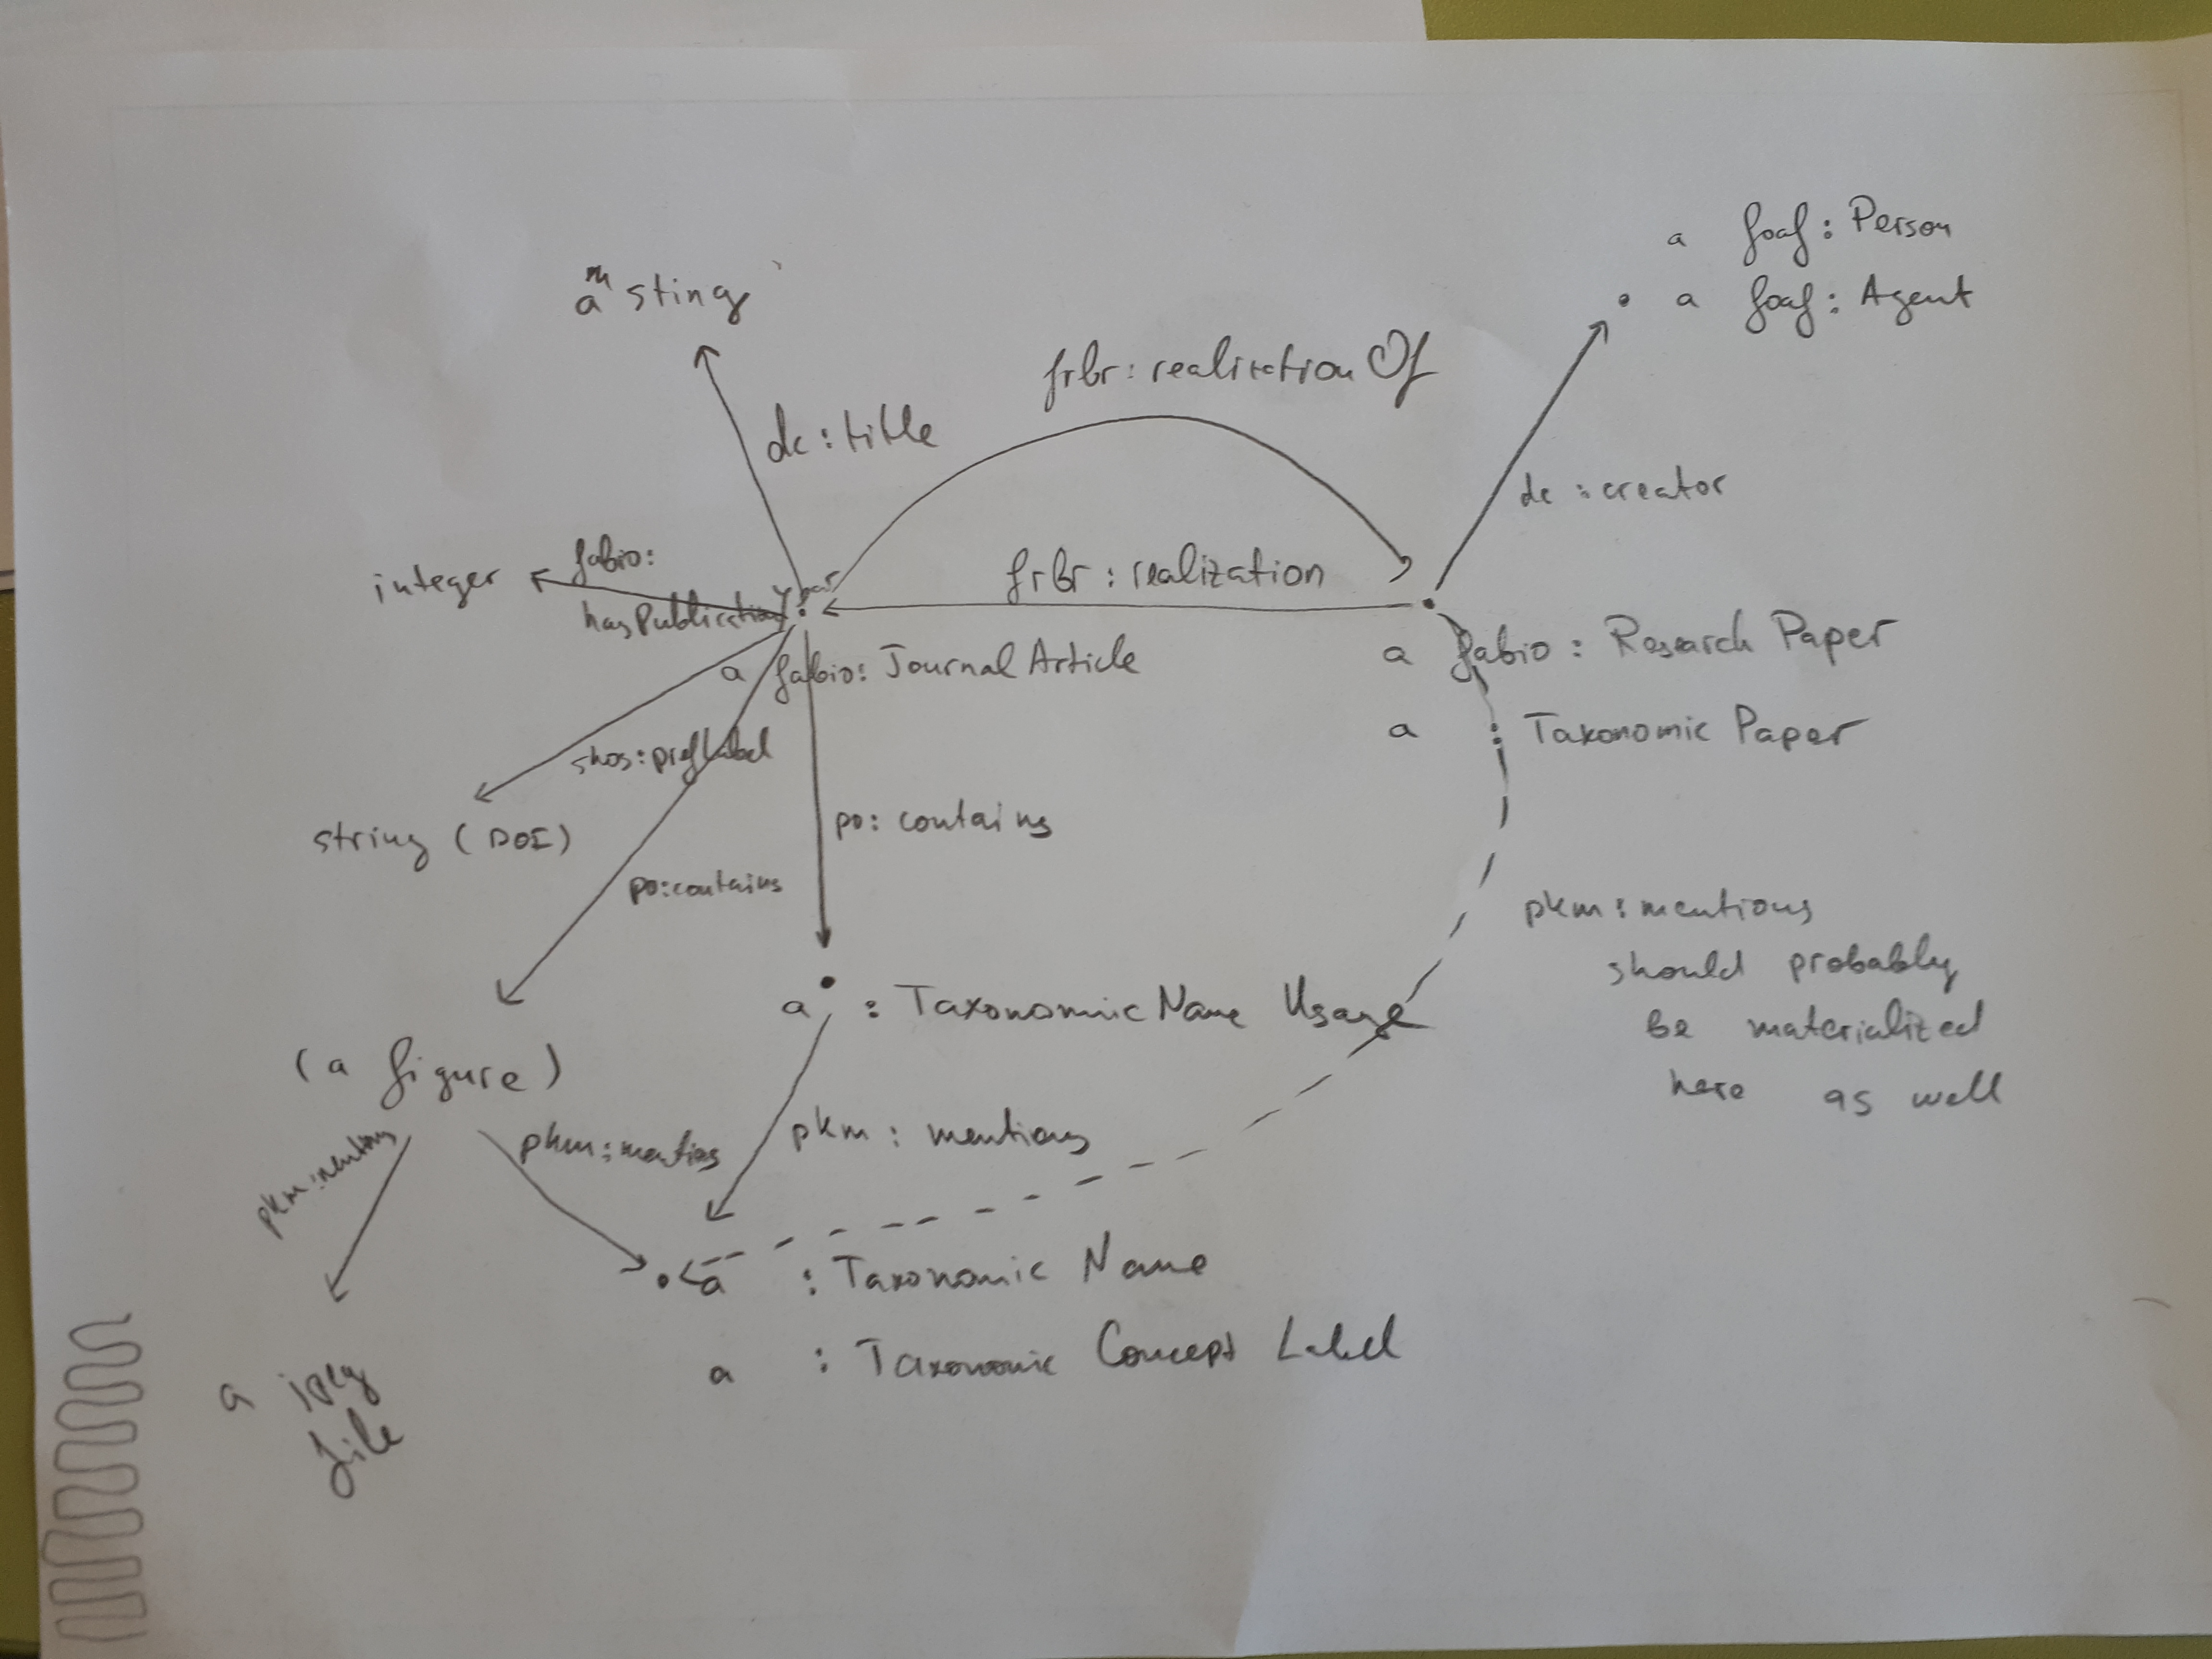 a foaf: Person
a foaf: Agent
a sting
frbr: realization Of
dc: title
dc: creator
integer
fabio:
hasPublicationYear
frbr: realization
a fabio: Journal Article
a fabio: Research Paper
a : Taxonomic Paper
skos: prefLabel
string (DOI)
po: contains
po: contains
pkm: mentions
should probably
be materialized
here as well
a : Taxonomic Name Usage
(a figure)
pkm: mentions
pkm: mentions
pkm: mentions
a : Taxonomic Name
a : Taxonomic Concept Label
a jpeg
file